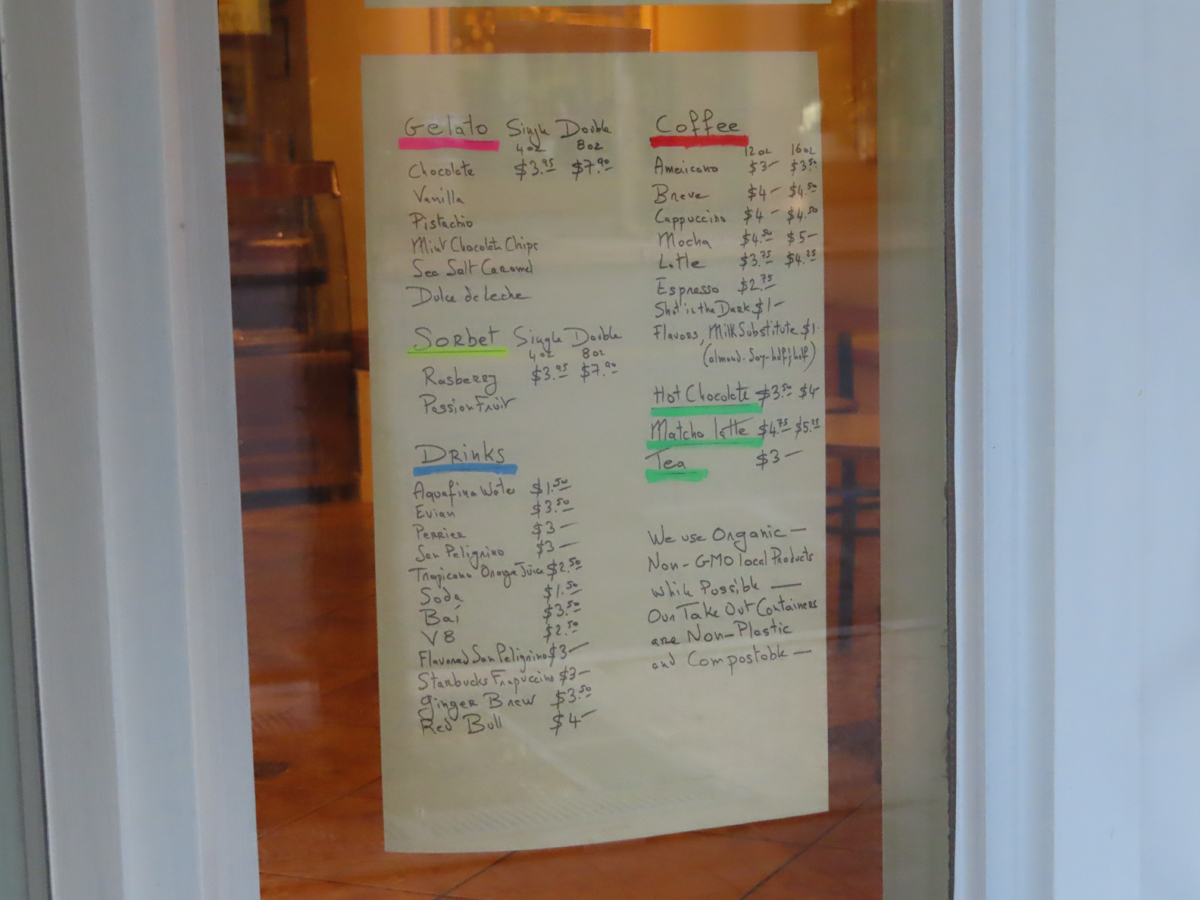 Gelato Single Double
4oz 8oz
Chocolate $3.95 $7.90
Vanilla
Pistachio
Mint Chocolate Chips
Sea Salt Caramel
Dulce de Leche
Sorbet Single Double
4oz 8oz
Rasberry $3.95 $7.90
Passion Fruit
Drinks
Aquafina Water $1.50
Evian $3.50
Perrier $3—
San Peligrino $3—
Tropicana Orange Juice $2.50
Soda $1.50
Bai $3.50
V8 $2.50
Flavored San Peligrino $3—
Starbucks Frapuccino $3—
Ginger Brew $3.50
Red Bull $4—
Coffee
12oz 16oz
Americano $3— $3.50
Breve $4— $4.50
Cappuccino $4— $4.50
Mocha $4.50 $5—
Latte $3.75 $4.25
Espresso $2.75
Shot in the Dark $1—
Flavors, Milk Substitute $1-
(almond-Soy-half/half)
Hot Chocolate $3.50 $4—
Matcha latte $4.75 $5.25
Tea $3—
We use Organic—
Non-GMO local Products
while Possible—
Our Take Out Containers
are Non-Plastic
and Compostable—